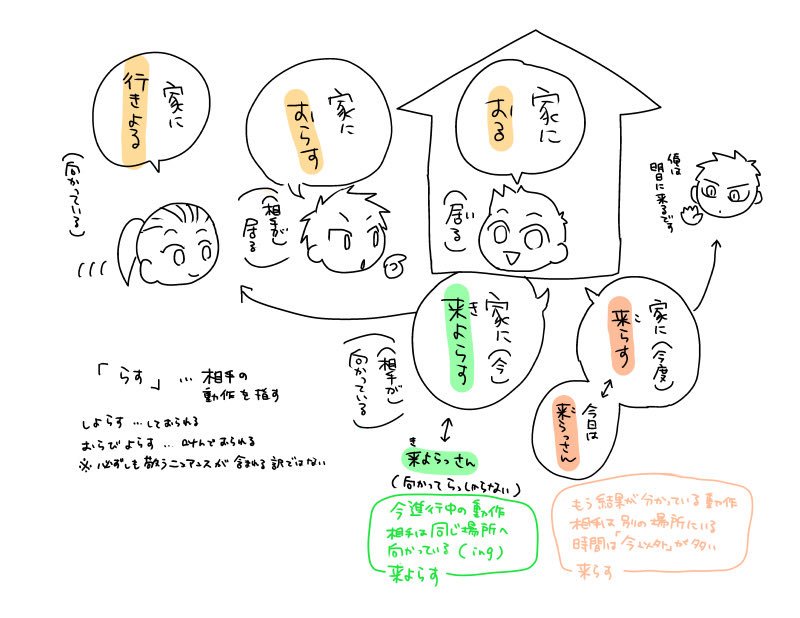 家に
行きよる
(向かっている)
家に
おらす
(相手が
居る)
家に
おる
(居る)
いる
俺は
明日に来るです
家に(今)
来よらす
き
(相手が)
向かっている
家に(今度)
来らす
こ
今日は
来らっさん
こ
「らす」…相手の
動作を指す
しよらす…しておられる
おらびよらす…叫んでおられる
※必ずしも敬うニュアンスが含まれる訳ではない
き
来よらっさん
(向かってらっしゃらない)
今進行中の動作
相手は同じ場所へ
向かっている(ing)
来よらす
もう結果が分かっている動作
相手は別の場所にいる
時間は「今以外」が多い
来らす